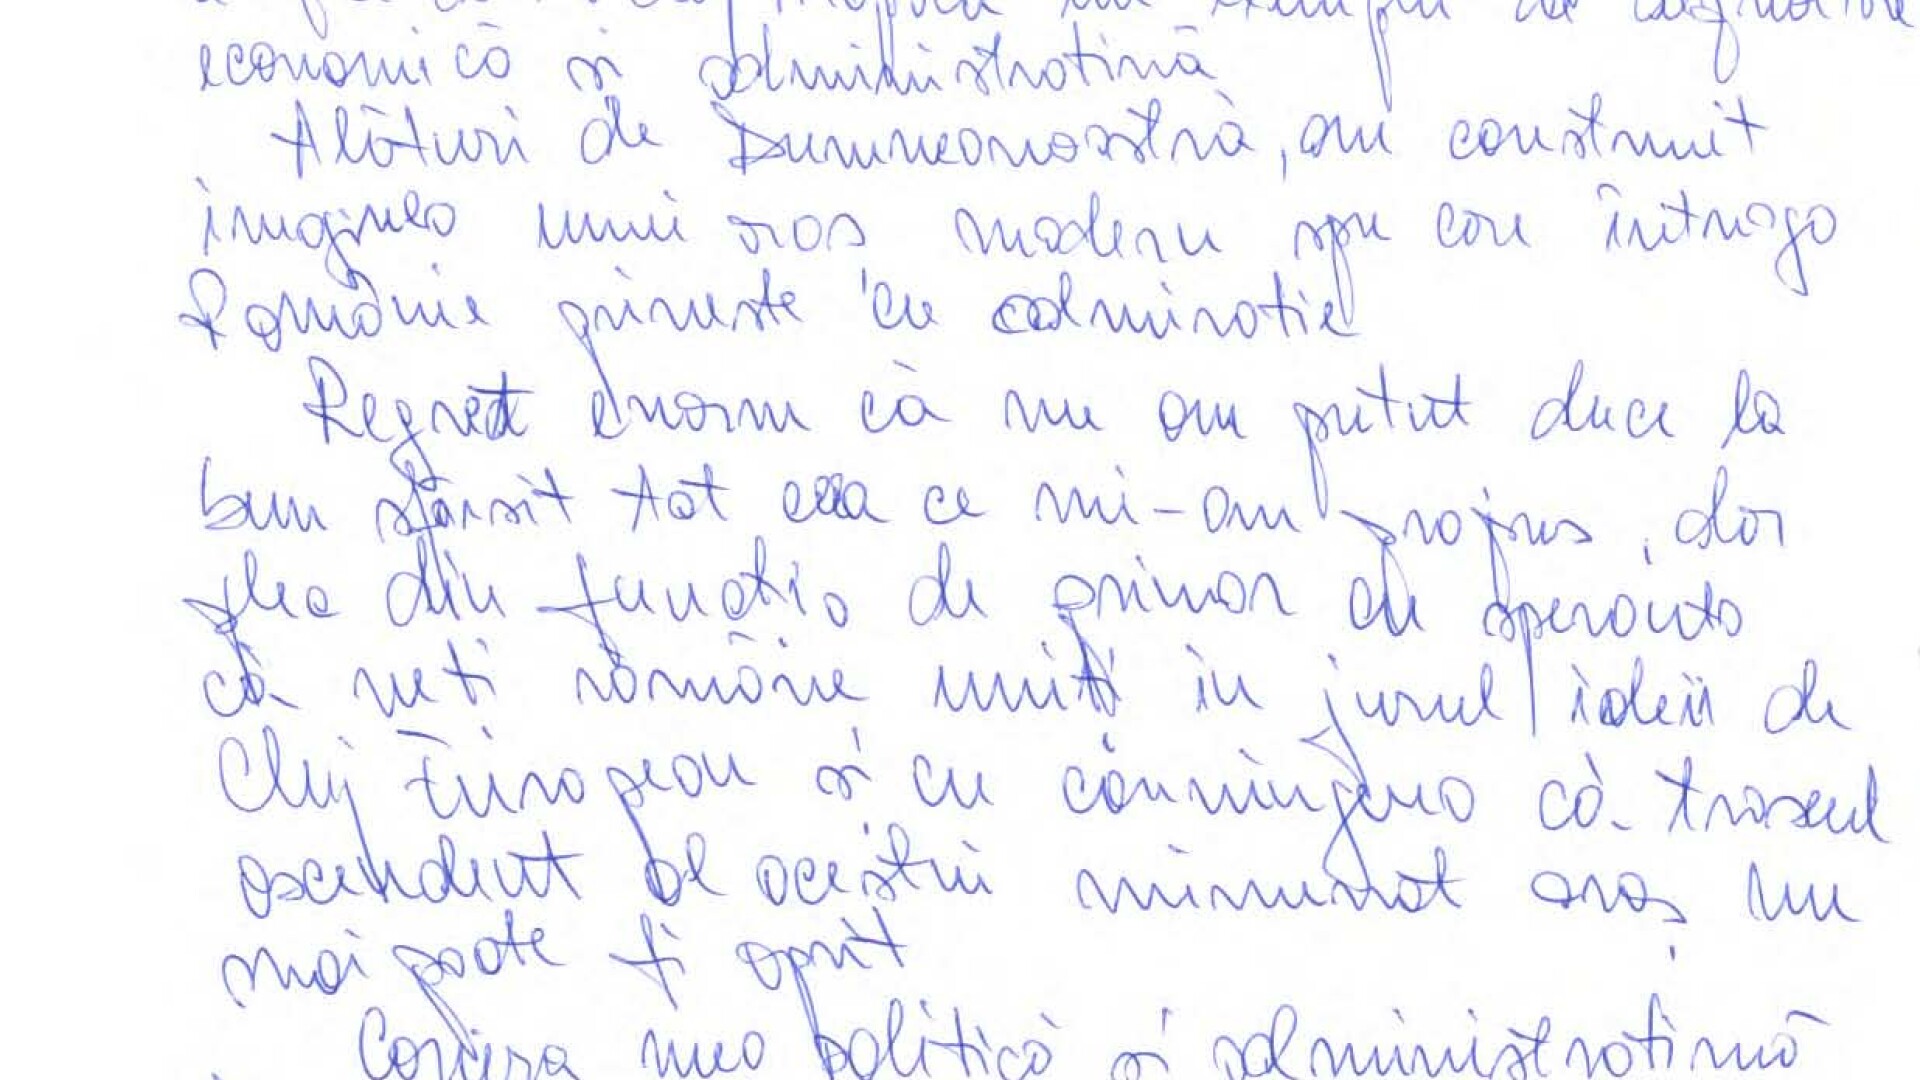 economică si administrativă
Alături de Dumneavoastră, am construit
imaginea unui oras modern spre care întreaga
Românie priveste cu admiratie
Regret enorm că nu am putut duce la
bun sfârsit tot ceea ce mi-am propus, dar
plec din functia de primar cu speranta
că veti rămâne uniti in jurul ideii de
Cluj European si cu convingerea că traseul
ascendent al acestui minunat oraș nu
mai poate fi oprit
Cariera mea politică si administrativă